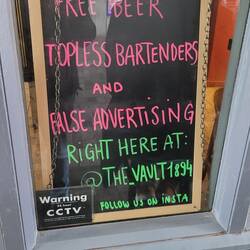 FREE BEER
TOPLESS BARTENDERS
AND
FALSE ADVERTISING
RIGHT HERE AT:
@THE_VAULT1894
FOLLOW US ON INSTA
Warning
24 hour
CCTV